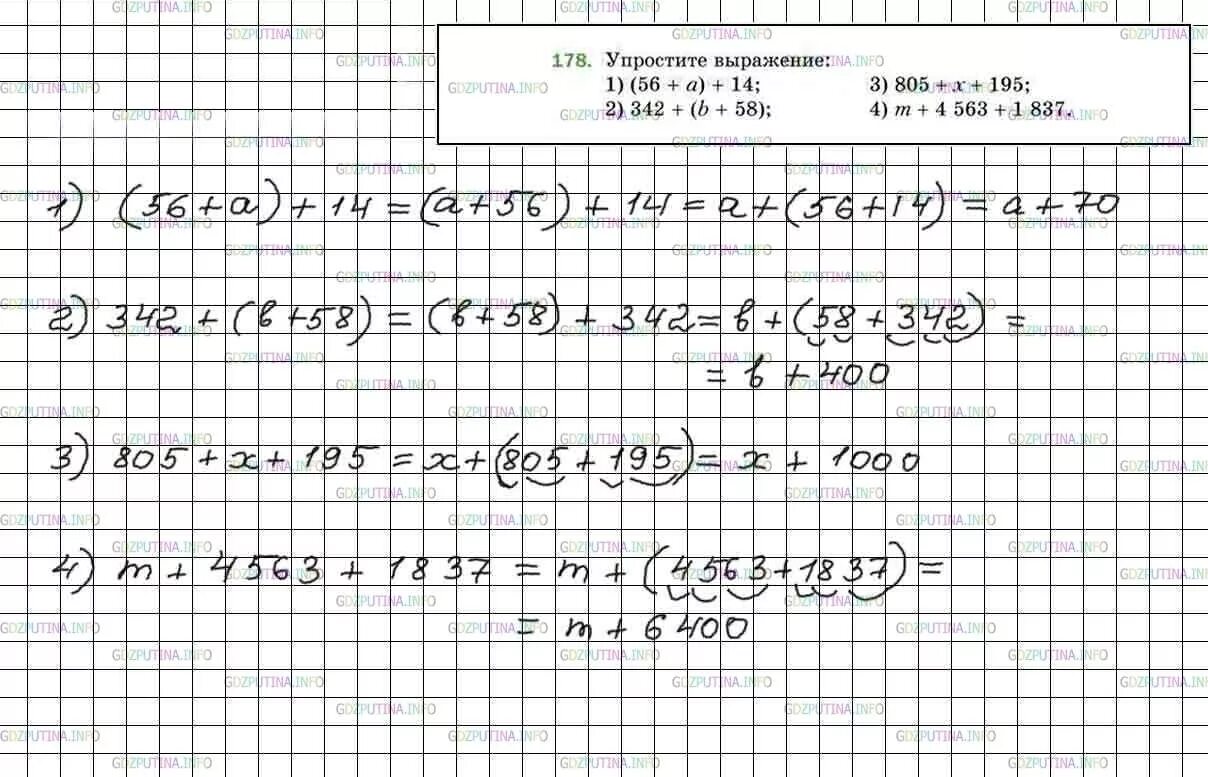 178. Упростите выражение:
1) (56 + a) + 14; 3) 805 + x + 195;
2) 342 + (b + 58); 4) m + 4 563 + 1 837.
1) (56 + a) + 14 = (a + 56) + 14 = a + (56 + 14) = a + 70
2) 342 + (b + 58) = (b + 58) + 342 = b + (58 + 342) =
= b + 400
3) 805 + x + 195 = x + (805 + 195) = x + 1000
4) m + 4563 + 1837 = m + (4563 + 1837) =
= m + 6400
GDZPUTINA.INFO